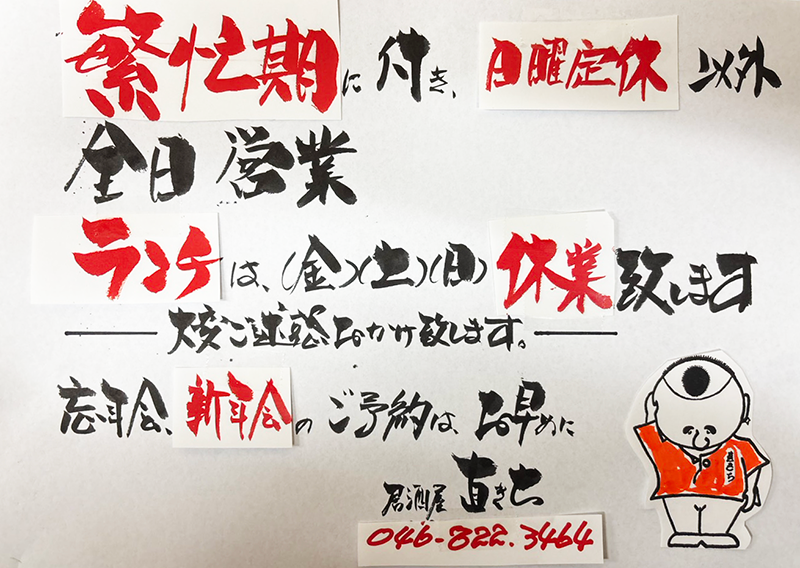 繁忙期に付き、日曜定休以外
全日営業
ランチは、(金)(土)(日)休業致します
大変ご迷惑おかけ致します。
忘年会、新年会のご予約は、お早めに
居酒屋 直きち
046-822.3464
直きち